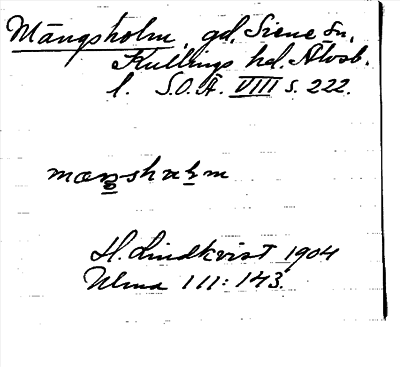 Mängsholm, gd, Siene sn,
Kullings hd. Älvsb.
l. S.O.Ä. VIII s. 222.
H. Lindkvist 1904
Ulma 111:143.